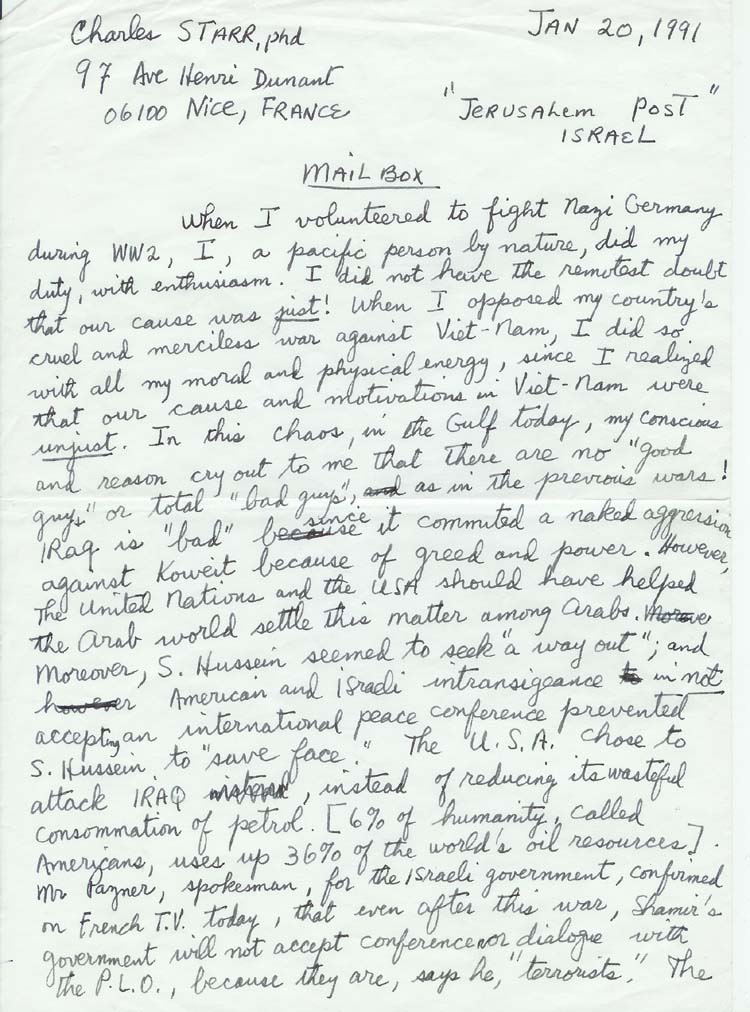 Charles STARR, phd
JAN 20, 1991
97 Ave Henri Dunant
06100 Nice, FRANCE
"JERUSALEM POST"
ISRAEL
MAIL BOX
When I volunteered to fight Nazi Germany
during WW2, I, a pacific person by nature, did my
duty, with enthusiasm. I did not have the remotest doubt
that our cause was just! When I opposed my country's
cruel and merciless war against Viet-Nam, I did so
with all my moral and physical energy, since I realized
that our cause and motivations in Viet-Nam were
unjust. In this chaos, in the Gulf today, my conscious
and reason cry out to me that there are no "good
guys" or total "bad guys", and as in the previous wars!
IRAQ is "bad" because since it commited a naked aggression
against Koweit because of greed and power. However,
The United Nations and the USA should have helped
the Arab world settle this matter among Arabs. Moreove
Moreover, S. Hussein seemed to seek "a way out"; and
however American and Israeli intransigeance to in not
accepting an international peace conference prevented
S. Hussein to "save face." The U.S.A. chose to
attack IRAQ instead, instead of reducing its wasteful
consommation of petrol. [6% of humanity, called
Americans, uses up 36% of the world's oil resources].
Mr Pazner, spokesman, for the Israeli government, confirmed
on French T.V. today, that even after this war, Shamir's
government will not accept conference nor dialogue with
the P.L.O., because they are, says he, "terrorists." The